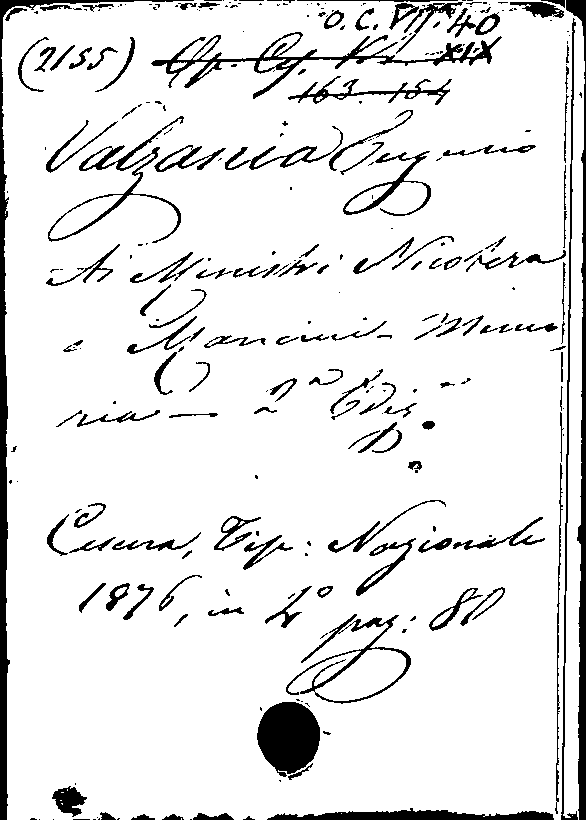 O.C. VII. 40
(2155) Op. Ces. Vol. XIX
163. 154
Valzania Eugenio
Ai Ministri Nicotera
e Mancini - Memo
ria - 2ª Ediz
Cesena, Tip: Nazionale
1876, in 2° pag: 80